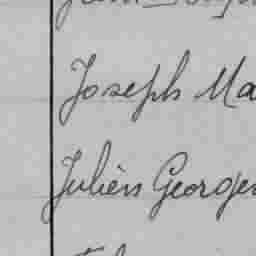 Joseph Ma
Julien Georges